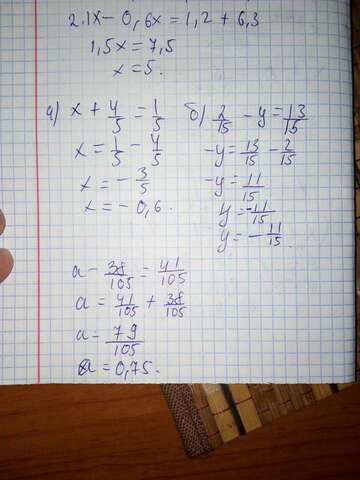 2.1x - 0,6x = 1,2 + 6,3
1,5x = 7,5
x = 5.
а) x + 4/5 = 1/5
x = 1/5 - 4/5
x = - 3/5
x = - 0,6.
б) 2/15 - y = 13/15
-y = 13/15 - 2/15
-y = 11/15
y = -11/15
y = - 11/15.
a - 38/105 = 41/105
a = 41/105 + 38/105
a = 79/105
a = 0,75.